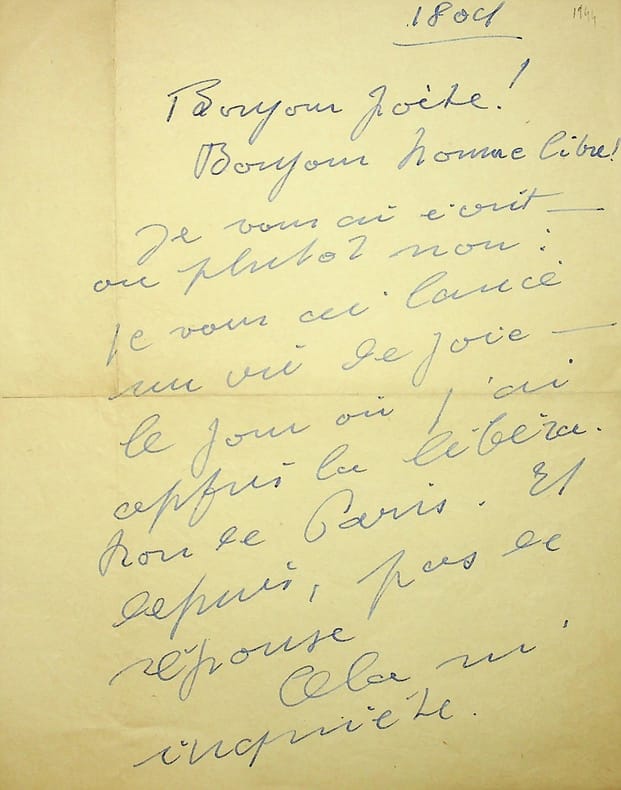 18 oct
1944
Bonjour poète!
Bonjour homme libre!
Je vous ai écrit —
ou plutôt non :
je vous ai lancé
un cri de joie —
le jour où j'ai
appris la libéra-
tion de Paris. Et
depuis, pas de
réponse
Cela m'
inquiète.